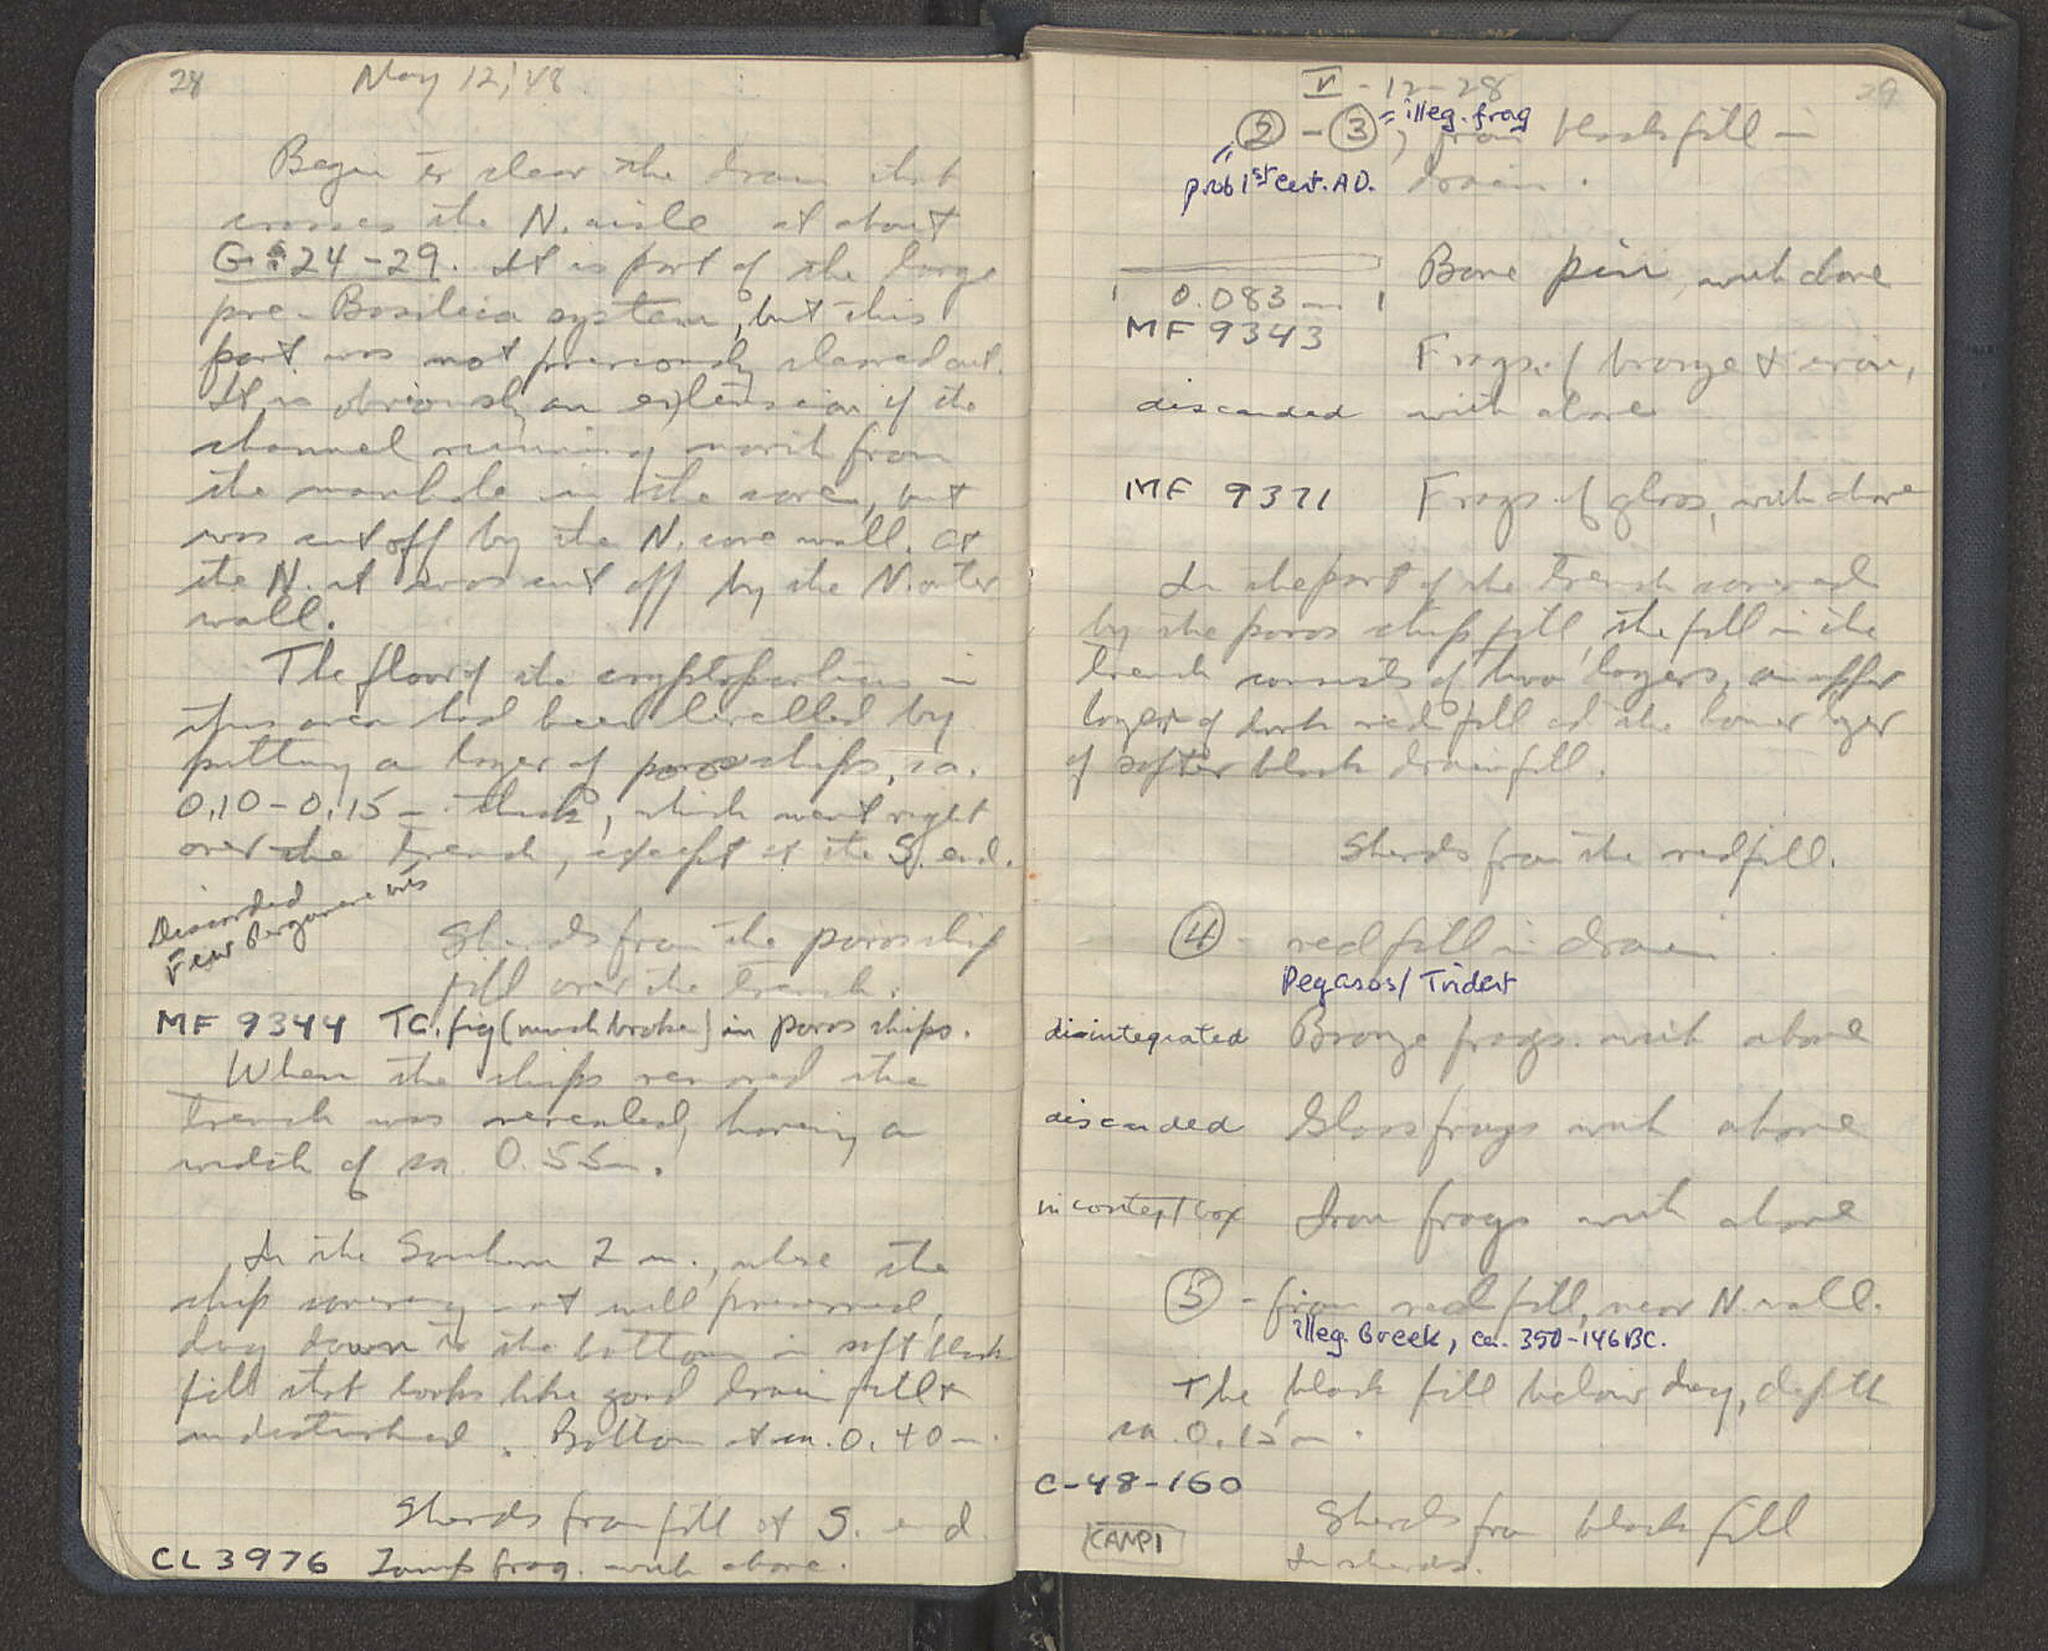 28
May 12, '48
Begin to clear the drain that
crosses the N. aisle at about
G: 24-29. It is part of the large
pre-Basilica system, but this
part was not previously cleared out.
It is obviously an extension of the
channel running north from
the manhole in the core, but
was cut off by the N. core wall. At
the N. it was cut off by the N. outer
wall.
The floor of the cryptoporticus in
this area had been levelled by
putting a layer of poros chips, ca.
0.10-0.15 m. thick, which went right
over the trench, except at the S. end.
Discarded
Few Pergamene
Sherds from the poros chip
fill over the trench.
MF 9344 TC. fig (much broken) in poros chips.
When the chips removed the
trench was revealed, having a
width of ca. 0.55 m.
In the Southern 2 m., where the
chip covering not well preserved,
dug down to the bottom in soft black
fill that looks like good drain fill &
undisturbed. Bottom at ca. 0.40 m.
Sherds from fill at S. end.
CL 3976 Lamp frag. with above.
29
V-12-28
② - ③, from black fill in
= illeg. frag
drain.
prob 1st cent. AD.
Bone pin, with above
0.083 m.
MF 9343
Frags. of bronze & iron,
discarded with above
MF 9371 Frags. of glass, with above
In the part of the trench covered
by the poros chip fill, the fill in the
trench consists of two layers, an upper
layer of dark red fill and the lower layer
of softer black drain fill.
Sherds from the red fill.
④ - red fill in drain
Pegasos/Trident
disintegrated Bronze frags. with above
discarded Glass frags with above
in context box Iron frags with above
⑤ - from red fill, near N. wall.
illeg. Greek, ca. 350-146 BC.
The black fill below dug, depth
ca. 0.15 m.
C-48-160
Sherds from black fill
CAMP1
In sherds.